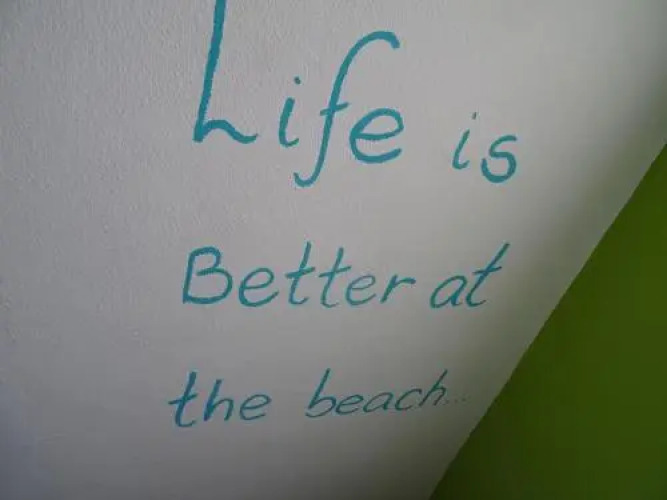 Life is
Better at
the beach...